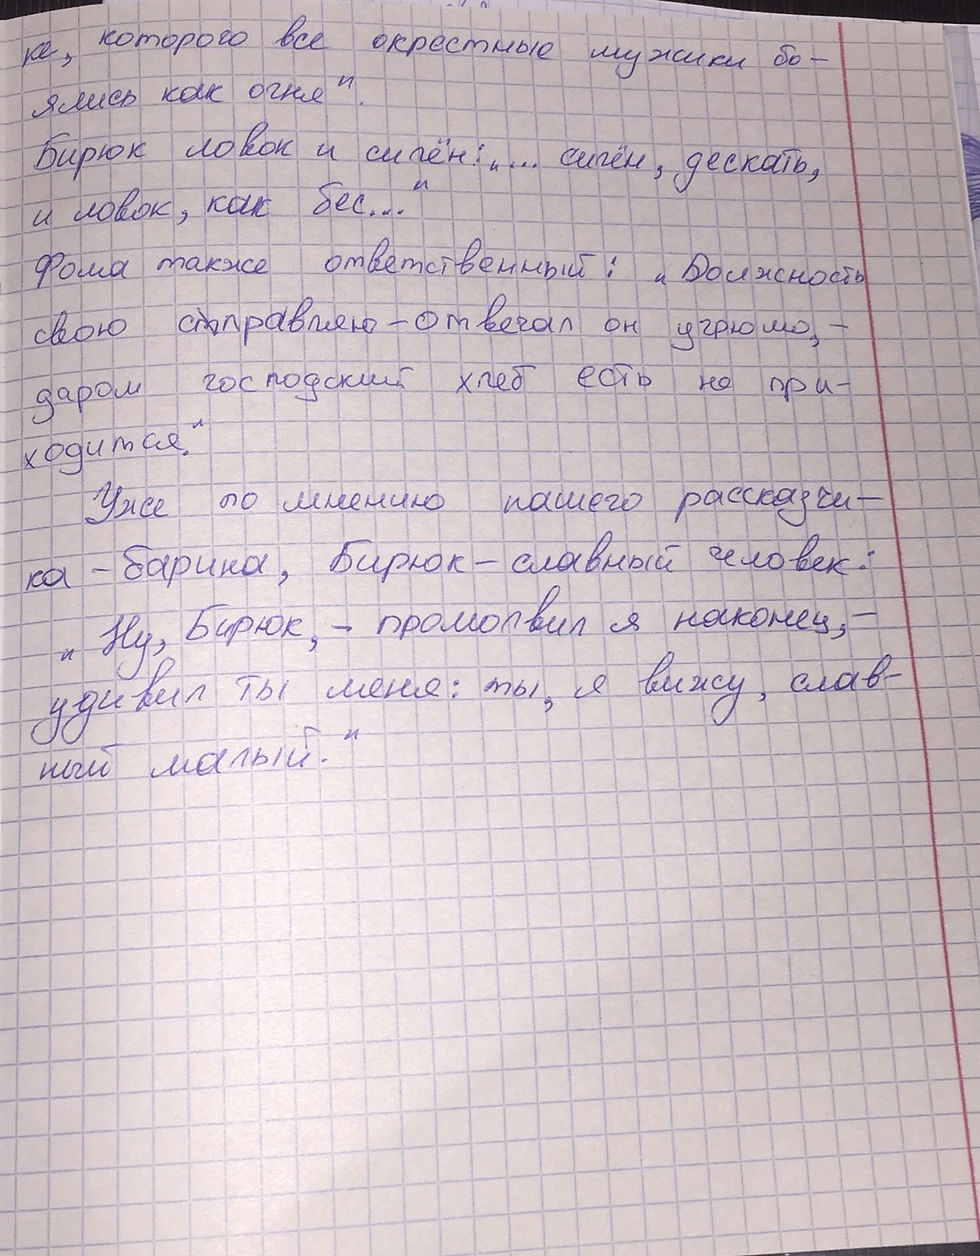 ке, которого все окрестные мужики бо-
ялись как огня".
Бирюк ловок и силён: „... силён, дескать,
и ловок, как бес..."
Фома также ответственный: „Должность
свою справляю - отвечал он угрюмо, -
даром господский хлеб есть не при-
ходится."
Уже по мнению нашего рассказчи-
ка - барина, Бирюк - славный человек:
„Ну, Бирюк, - промолвил я наконец, -
удивил ты меня: ты, я вижу, слав-
ный малый."